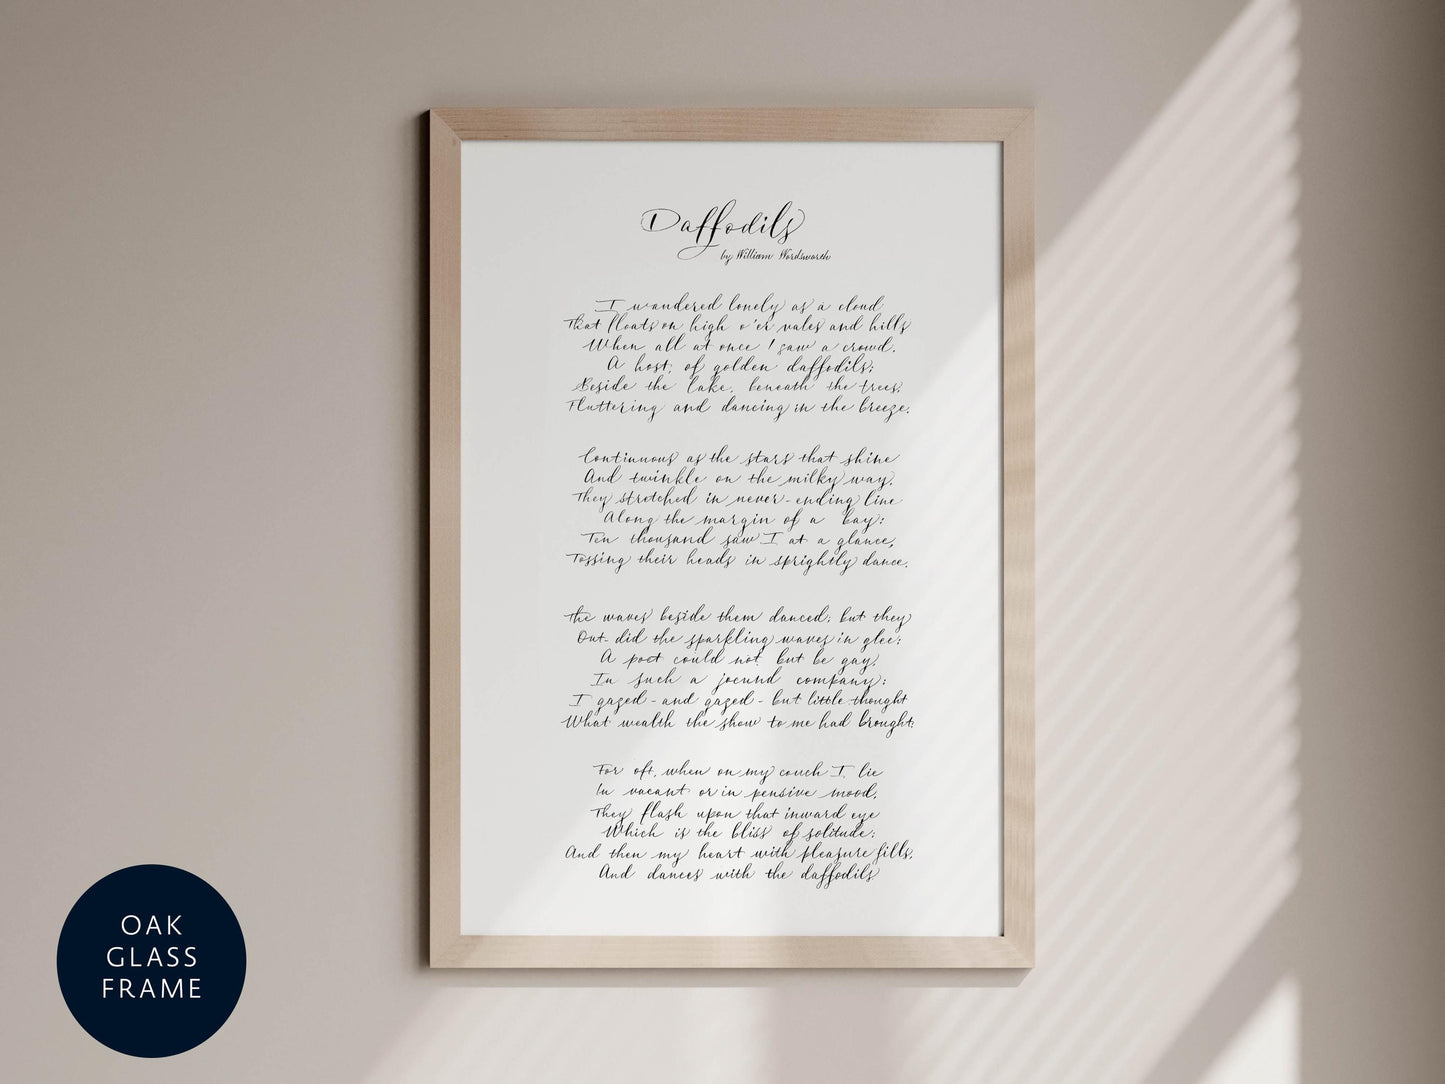 Daffodils
by William Wordsworth
I wandered lonely as a cloud
That floats on high o'er vales and hills
When all at once I saw a crowd,
A host, of golden daffodils;
Beside the lake, beneath the trees,
Fluttering and dancing in the breeze.
Continuous as the stars that shine
And twinkle on the milky way,
They stretched in never-ending line
Along the margin of a bay:
Ten thousand saw I at a glance,
Tossing their heads in sprightly dance.
The waves beside them danced; but they
Out-did the sparkling waves in glee:
A poet could not but be gay,
In such a jocund company:
I gazed - and gazed - but little thought
What wealth the show to me had brought:
For oft, when on my couch I lie
In vacant or in pensive mood,
They flash upon that inward eye
Which is the bliss of solitude;
And then my heart with pleasure fills,
And dances with the daffodils
OAK
GLASS
FRAME